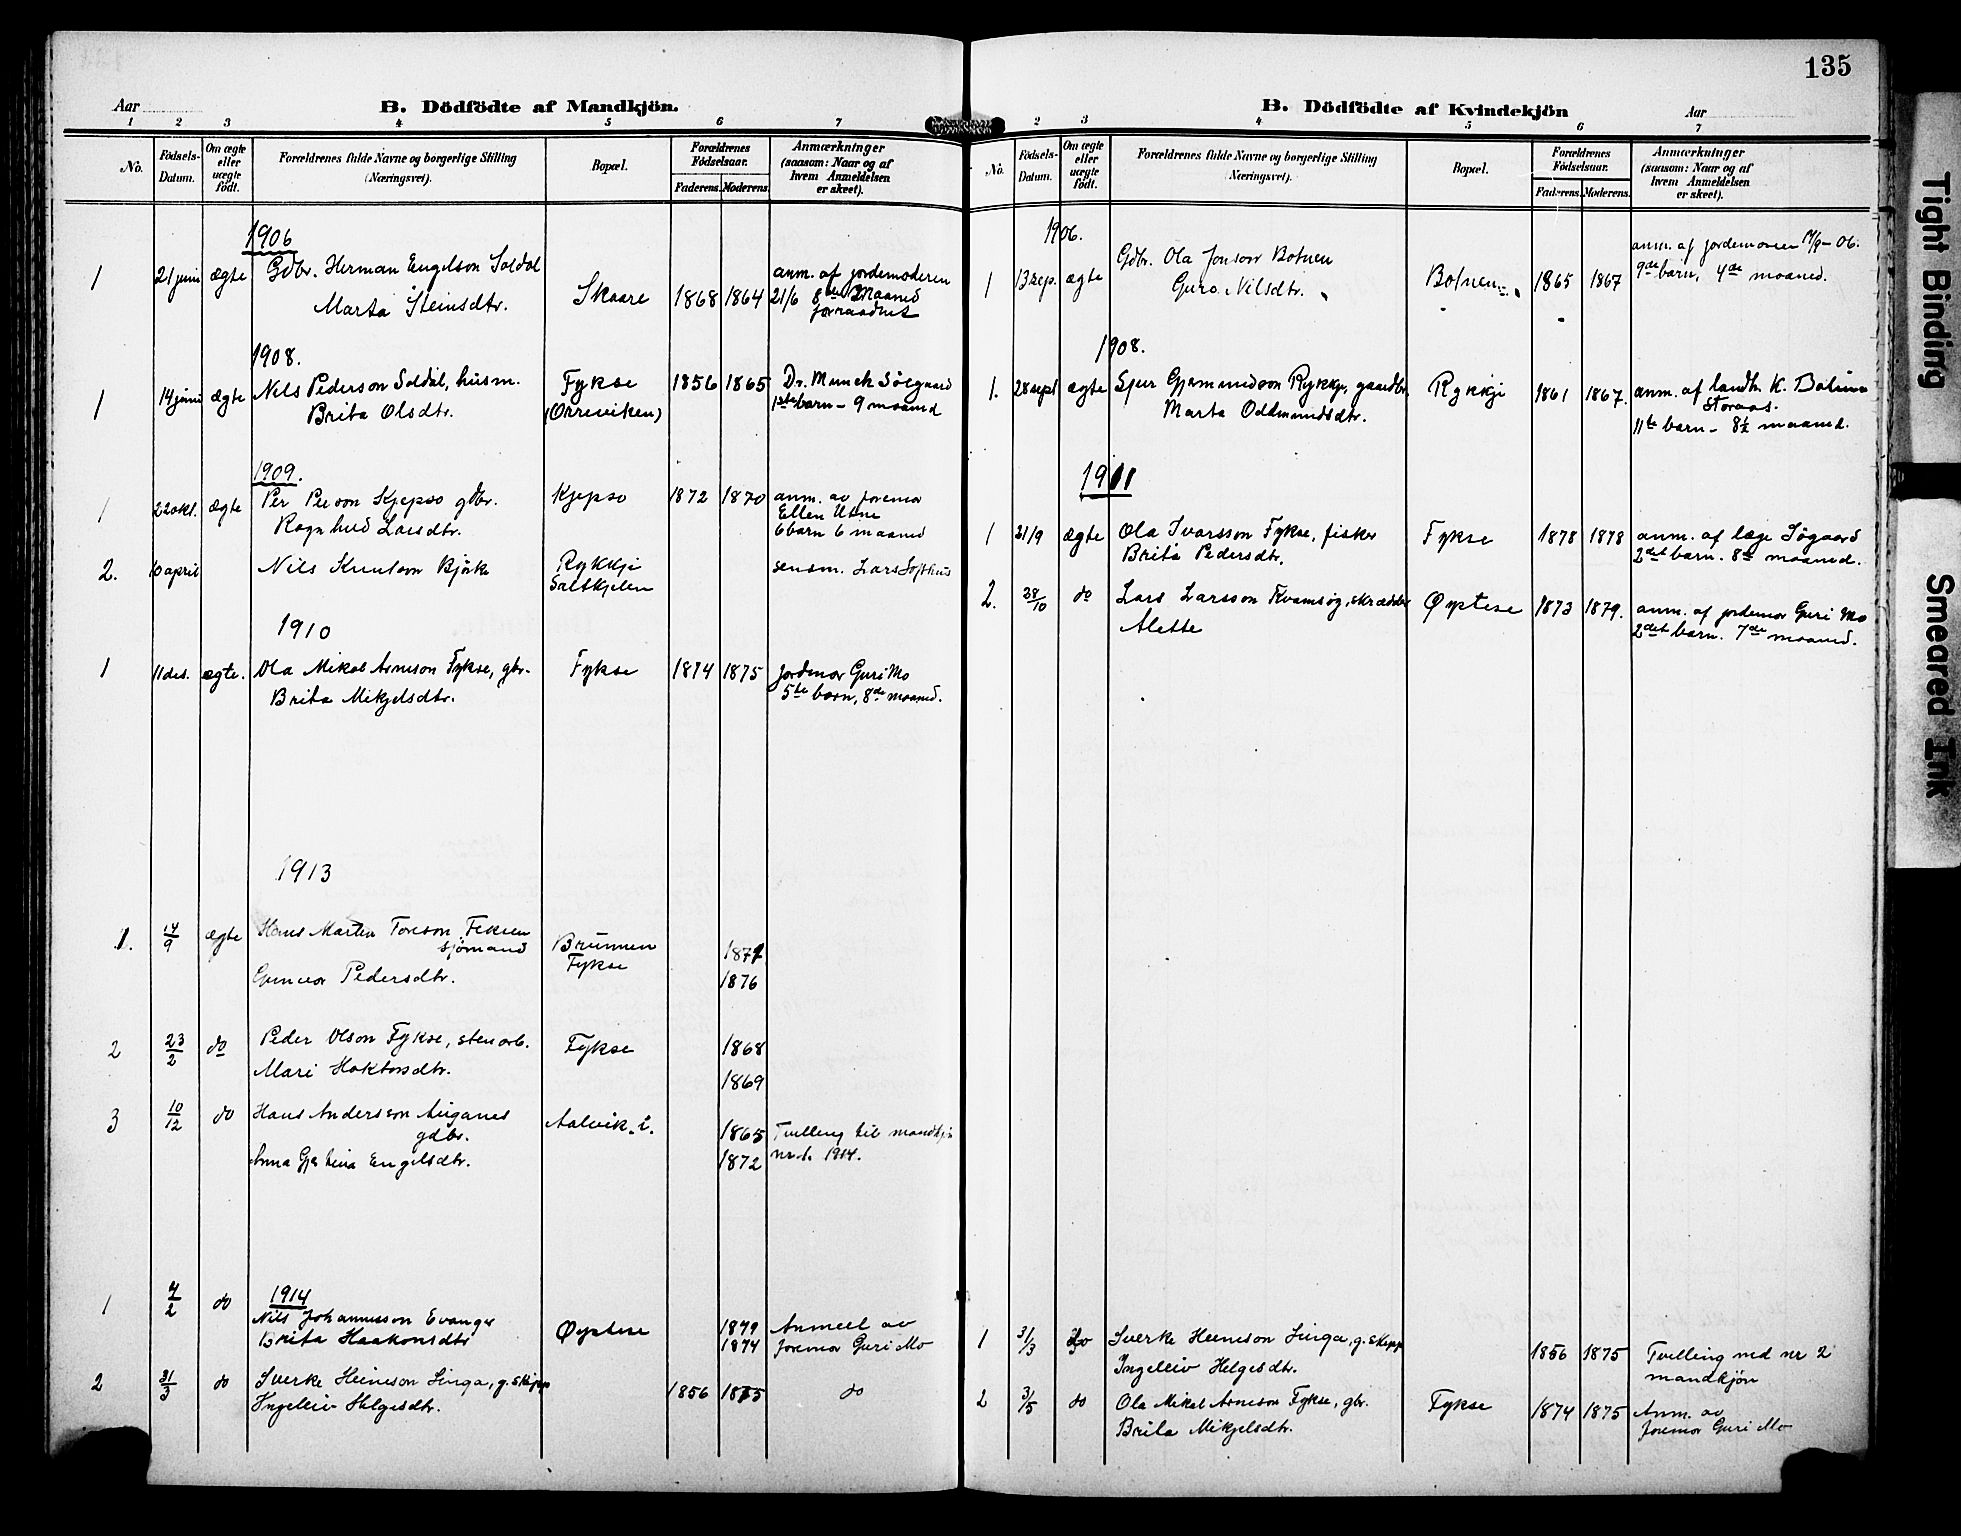 135
Aar
B. Dödfödte af Mandkjön.
1 2 3 4 5 6 7
No.
Födsels-Datum.
Om ægte eller uægte födt.
Forældrenes fulde Navne og borgerlige Stilling (Næringsvei).
Bopæl.
Forældrenes Födselsaar.
Faderens. Moderens.
Anmærkninger (saasom: Naar og af hvem Anmeldelsen er skeet).
1906
1 21 juni ægte Gdbr. Herman Engelson Soldal
Marta Steinsdtr. Skaare 1868 1864
anm. af jordemoderen
21/6 8de Maaned
1908.
1 14 juni ægte Nils Pederson Soldal, husm.
Brita Olsdtr.
Fykse
(Orreviken)
1856 1865
Dr. Munch Søegaard
1ste barn - 9 maaned
1909.
1 22 okt. ægte Per Person Skjepso gdbr.
Ragnhild Larsdtr.
Kjepso 1872 1870
anm. av joremor
Ellen Utne
6 barn 6 maaned
2. 10 april Nils Knutson Bjørke
Rykkje
Saltkjelen
sensm. Lars Lofthus
1910
1 11 des. ægte. Ola Mikal Arneson Fykse, gbr.
Brita Mikjelsdtr.
Fykse 1874 1875
Jordmor Guri Mo
5te barn, 8de maaned.
1913
1. 14/9 ægte Hans Martin Toreson
sjømand
Pedersdtr.
Brunnen
Fykse
1876
2 23/2 do Peder Olson Fykse, stenarb.
Mari Haktorsdtr.
Fykse
1868
1869
3 10/12 do Hans Andersson
gdbr.
Anna Gjertina Engelsdtr.
Aalvik. i.
1865
1872
Tvilling til mandkjø
nr. 1. 1914.
1914
1 4/2 do Nils Johannesson Evanger
Brita Haakonsdtr
Øystese
1879
1874
Anmelt av
Joremor Guri Mo
2 31/3 do Sverke Heineson Linga, g. skipp
Ingeleiv Helgesdtr.
1856 1875 do
B. Dödfödte af Kvindekjön
Aar
2 3 4 5 6 7
No.
Födsels-Datum.
Om ægte eller uægte födt.
Forældrenes fulde Navne og borgerlige Stilling (Næringsvei).
Bopæl.
Forældrenes Födselsaar.
Faderens. Moderens.
Anmærkninger (saasom: Naar og af hvem Anmeldelsen er skeet).
1906.
1 13 sep. ægte Gdbr. Ola Jonson Botnen
Guro Nilsdtr.
Botnen 1865 1867
anm. af jordemoren /9 - 06.
9de barn, 4de maaned.
1908.
1. 28 sept ægte Sjur Gjermundson Rykkje, gaardbr.
Marta Oddmundsdtr.
Rykkje 1861 1867.
anm. af landh. K. Botnen
Storaas.
11te barn - 8½ maaned.
1911
1 21/9 ægte Ola Ivarsson Fykse, fisker
Brita Pedersdtr.
Fykse 1878 1878
anm. af læge Søgaard
2det barn. 8de maaned.
2. 28/10 do Lars Larsson Kvamsøg, skrædder
Alette
Øystese 1873 1879.
anm. af jordemor Guri Mo
2det barn. 7de maaned.
1 31/3 do Sverke Heineson Linga, g. skipp
Ingeleiv Helgesdtr.
1856 1875
Tvilling med nr 2
mandkjøn
2 3/5 do Ola Mikal Arneson Fykse, gbr.
Brita Mikjelsdtr.
Fykse 1874 1875
Anm. av
Joremor Guri Mo
Tight Binding
Smeared Ink